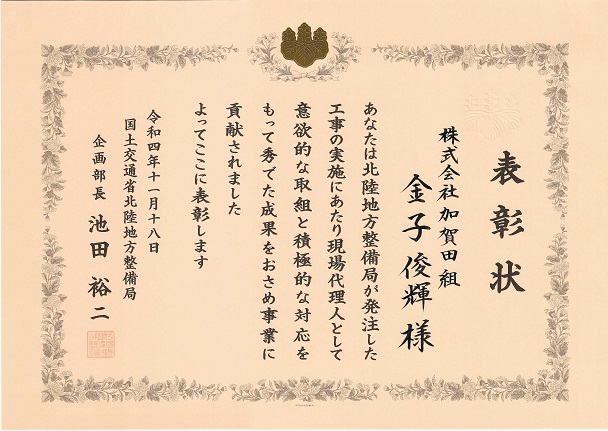 表彰状
株式会社加賀田組
金子俊輝様
あなたは北陸地方整備局が発注した
工事の実施にあたり現場代理人として
意欲的な取組と積極的な対応を
もって秀でた成果をおさめ事業に
貢献されました
よってここに表彰します
令和四年十一月十八日
国土交通省北陸地方整備局
企画部長 池田裕二